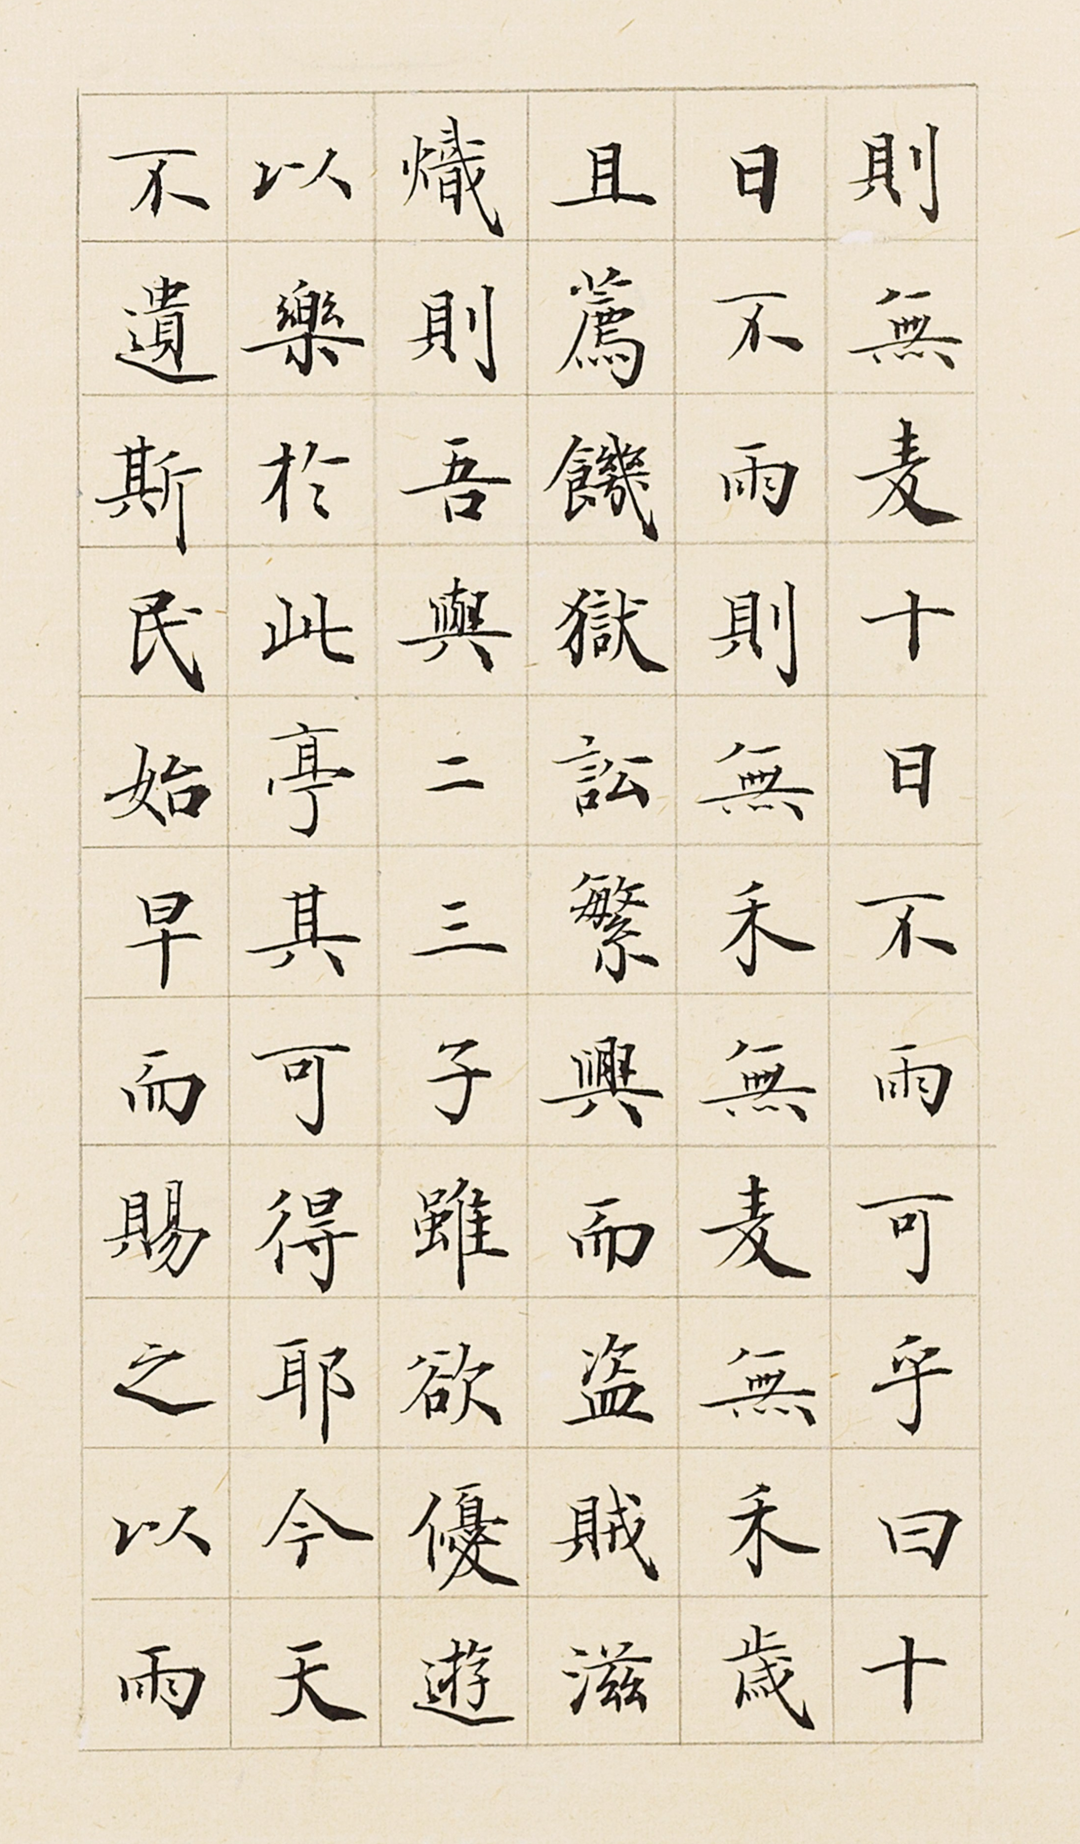 則無麦十日不雨可乎曰十
日不雨則無禾無麦無禾歳
且薦饑獄訟繁興而盜賊滋
熾則吾與二三子雖欲優遊
以樂於此亭其可得耶今天
不遺斯民始早而賜之以雨